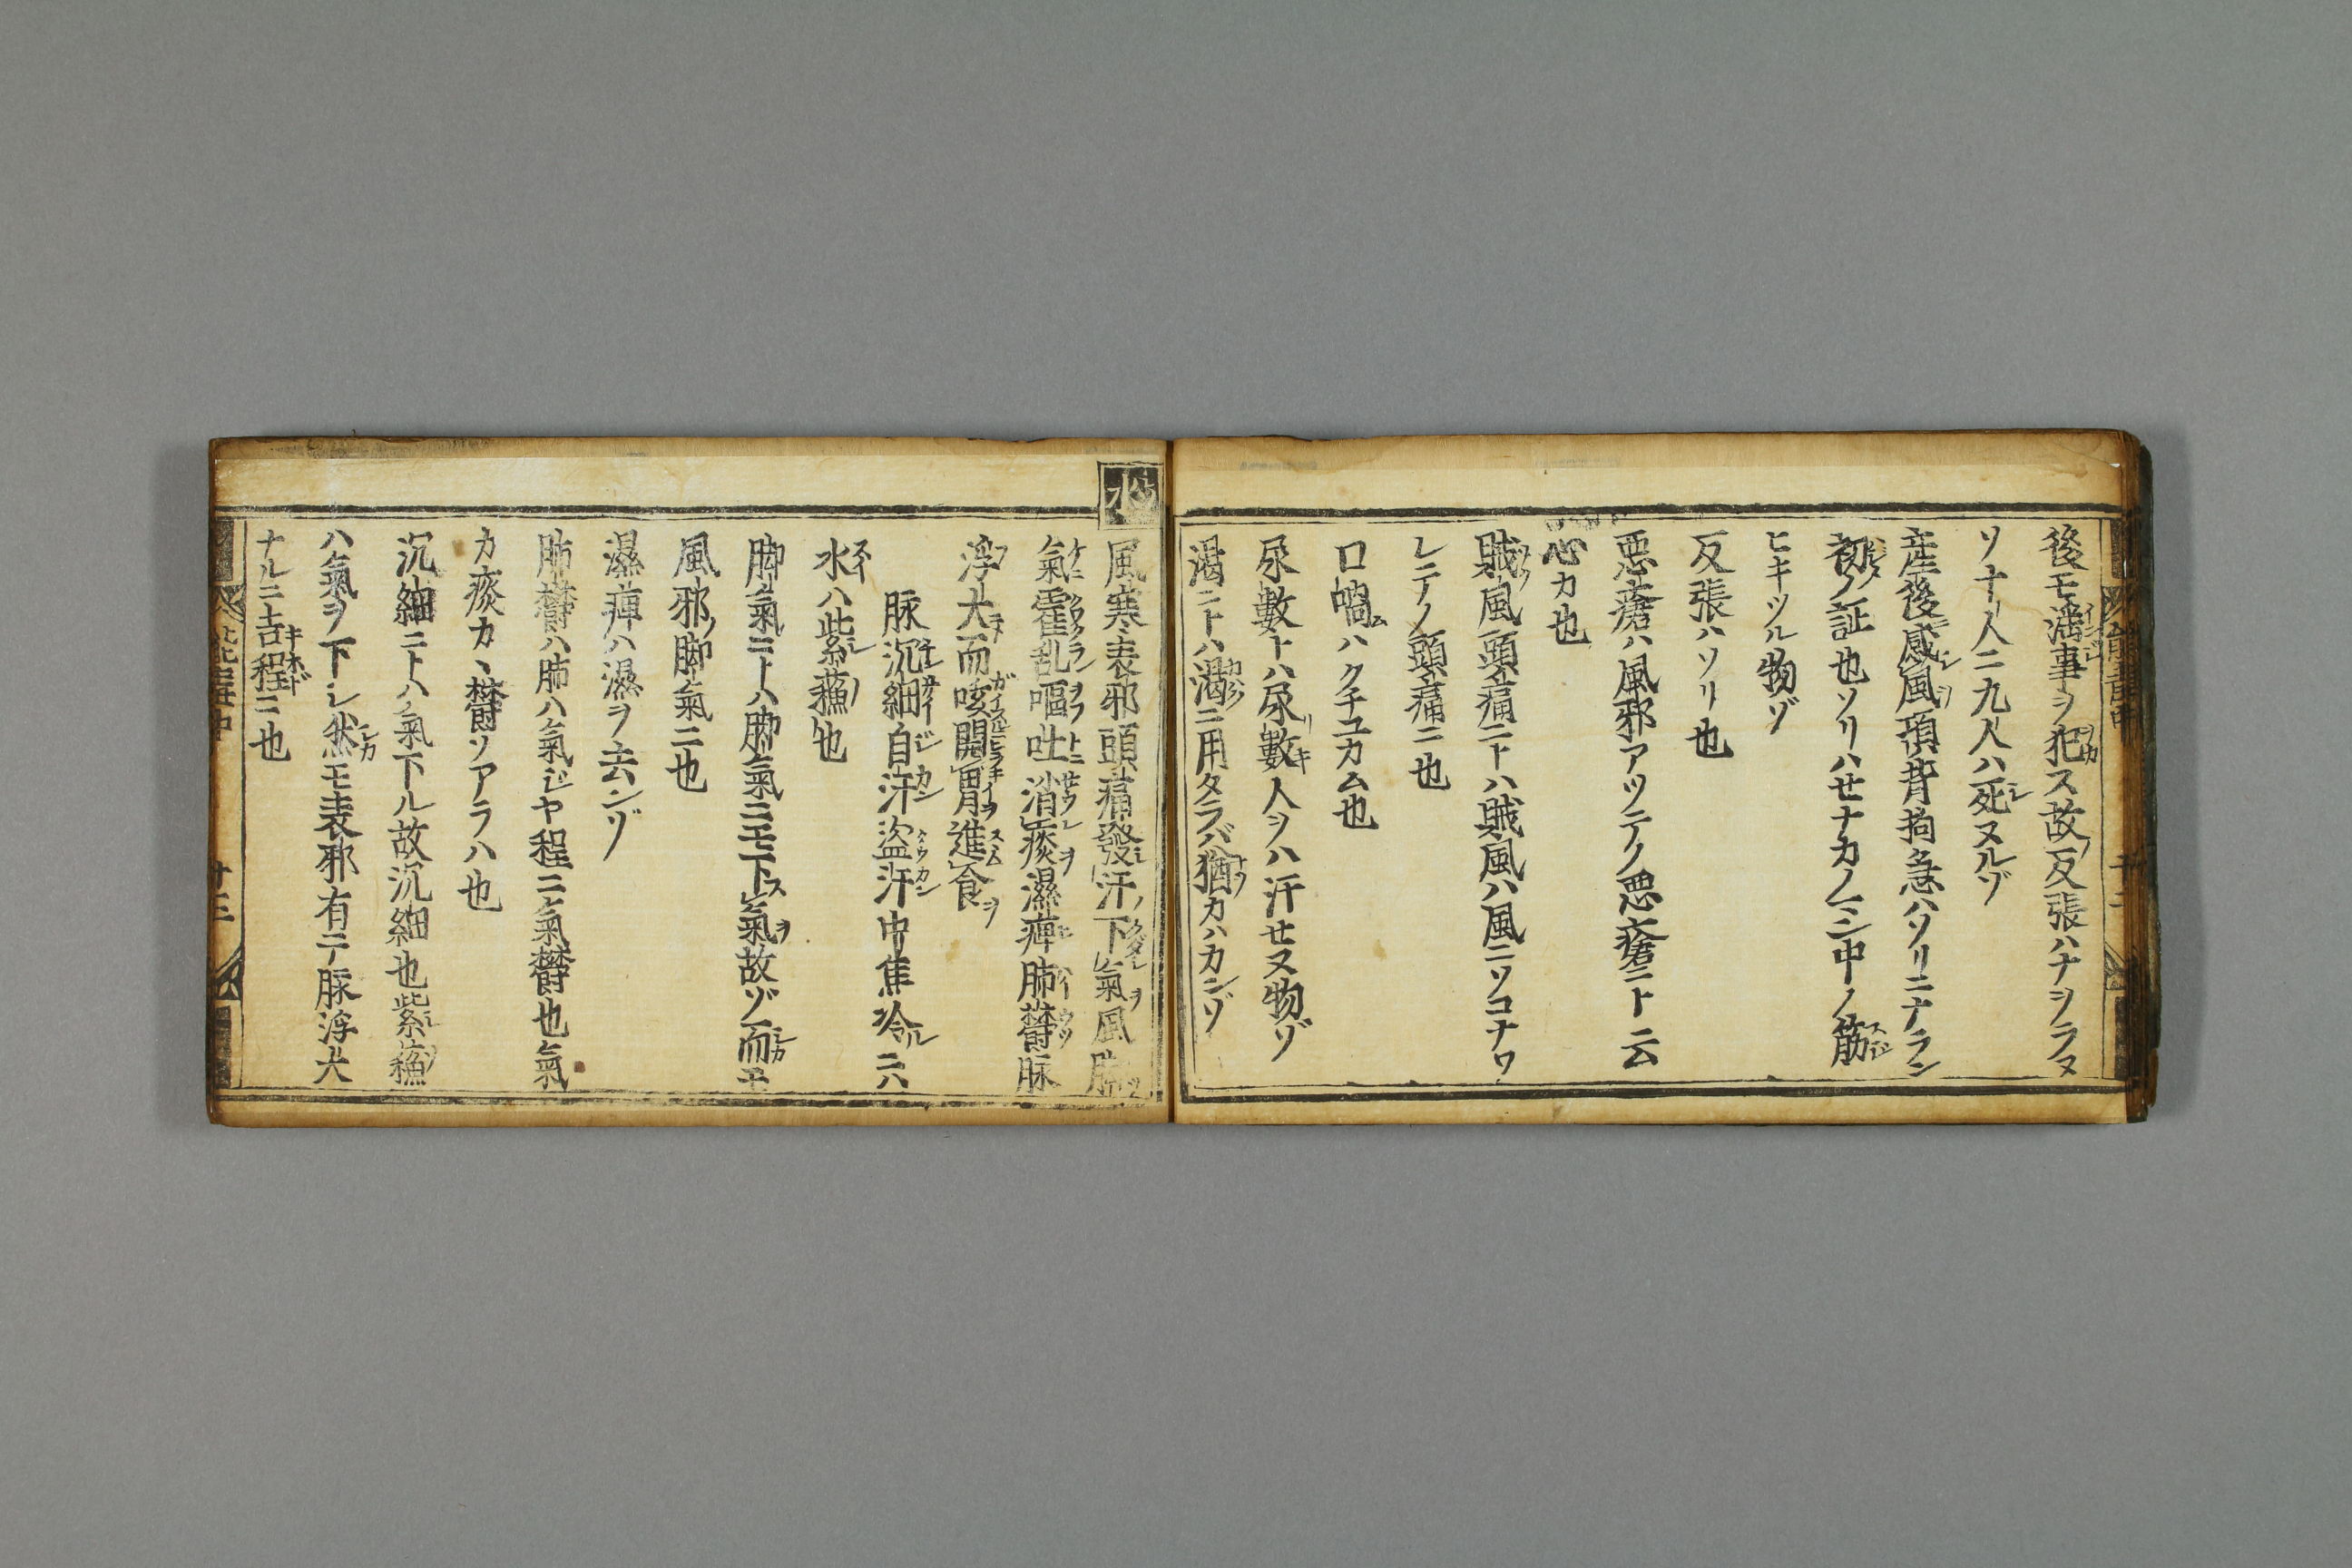 後モ淫事ヲ犯ス故ノ反張ハナヲラヌ
ソ十人ニ九人ハ死ヌルゾ
産後感風項背拘急ハソリニナラン
初ノ証也ソリハセナカノ中ノ筋
ヒキツル物ゾ
反張ハソリ也
悪瘡ハ風邪アツテノ悪瘡ニト云
心カ也
賊風頭痛ニトハ賊風ハ風ニソコナワ
レテノ頭痛ニ也
口喎ハクチユカム也
尿數トハ尿數人ヲハ汗セヌ物ゾ
渇ニトハ渇ニ用タラバ猶カハカンゾ
水
風寒表邪頭痛發汗下氣風脚
氣霍乱嘔吐消痰濕痺肺欝脉
浮大而咳開胃進食
脉沉細自汗盗汗中焦冷ニハ
水ハ紫蘓也
脚氣ニトハ脚氣ニモ下ス氣ヲ故ゾ而モ
風邪ノ脚氣ニ也
濕痺ハ濕ヲ去ンゾ
肺欝ハ肺ハ氣ジヤ程ニ氣欝也氣
カ痰カヽ欝ソアラハ也
沉細ニトハ氣下ル故沉細也紫蘓
ハ氣ヲ下レ然モ表邪有テ脉浮大
ナルニ吉程ニ也
十三